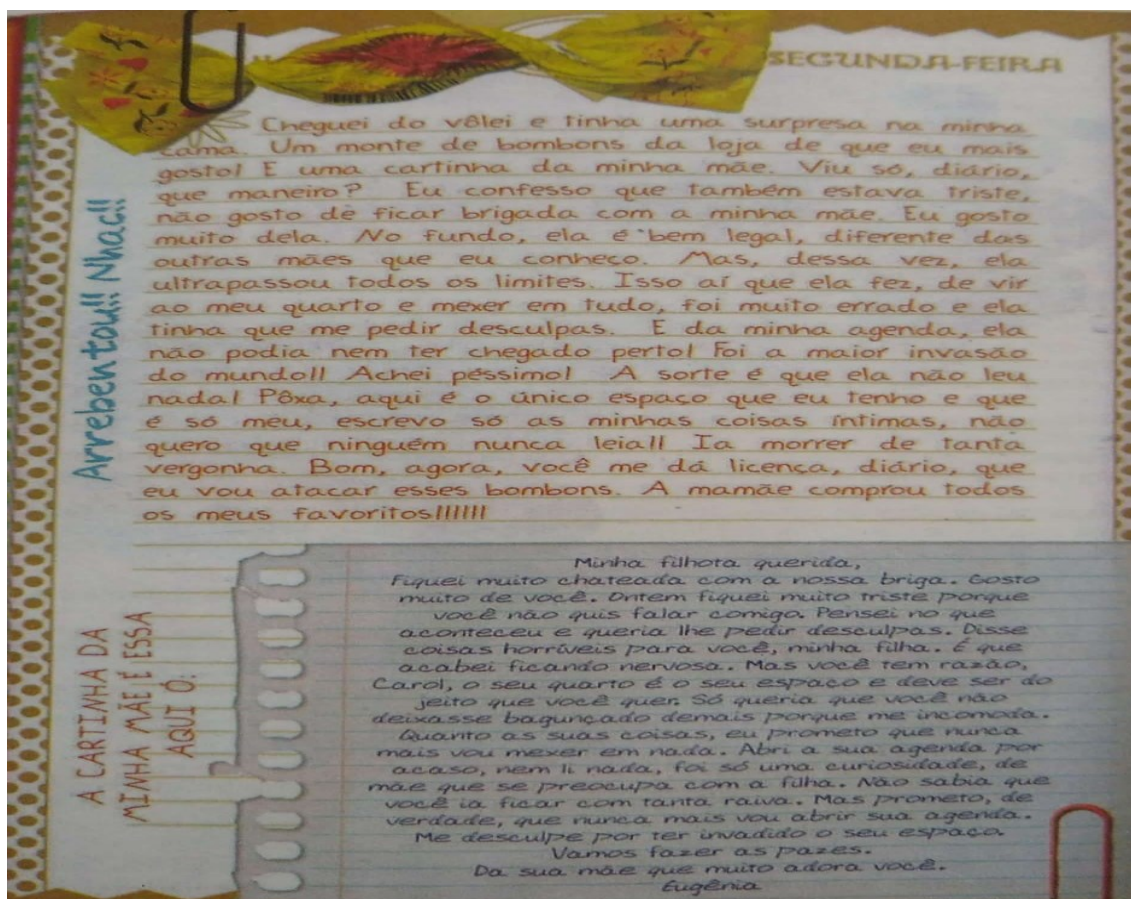 SEGUNDA-FEIRA
Cheguei do vôlei e tinha uma surpresa na minha
cama. Um monte de bombons da loja de que eu mais
gosto! E uma cartinha da minha mãe. Viu só, diário,
que maneiro? Eu confesso que também estava triste,
não gosto de ficar brigada com a minha mãe. Eu gosto
muito dela. No fundo, ela é bem legal, diferente das
outras mães que eu conheço. Mas, dessa vez, ela
ultrapassou todos os limites. Isso aí que ela fez, de vir
ao meu quarto e mexer em tudo, foi muito errado e ela
tinha que me pedir desculpas. E da minha agenda, ela
não podia nem ter chegado perto! Foi a maior invasão
do mundo!! Achei péssimo! A sorte é que ela não leu
nada! Pôxa, aqui é o único espaço que eu tenho e que
é só meu, escrevo só as minhas coisas íntimas, não
quero que ninguém nunca leia!! Ia morrer de tanta
vergonha. Bom, agora, você me dá licença, diário, que
eu vou atacar esses bombons. A mamãe comprou todos
os meus favoritos!!!!!!
Arrebentou!! Nhac!!
A CARTINHA DA
MINHA MÃE É ESSA
AQUI Ó:
Minha filhota querida,
Fiquei muito chateada com a nossa briga. Gosto
muito de você. Ontem fiquei muito triste porque
você não quis falar comigo. Pensei no que
aconteceu e queria lhe pedir desculpas. Disse
coisas horríveis para você, minha filha. É que
acabei ficando nervosa. Mas você tem razão,
Carol, o seu quarto é o seu espaço e deve ser do
jeito que você quer. Só queria que você não
deixasse bagunçado demais porque me incomoda.
Quanto as suas coisas, eu prometo que nunca
mais vou mexer em nada. Abri a sua agenda por
acaso, nem li nada, foi só uma curiosidade, de
mãe que se preocupa com a filha. Não sabia que
você ia ficar com tanta raiva. Mas prometo, de
verdade, que nunca mais vou abrir sua agenda.
Me desculpe por ter invadido o seu espaço.
Vamos fazer as pazes.
Da sua mãe que muito adora você.
Eugênia